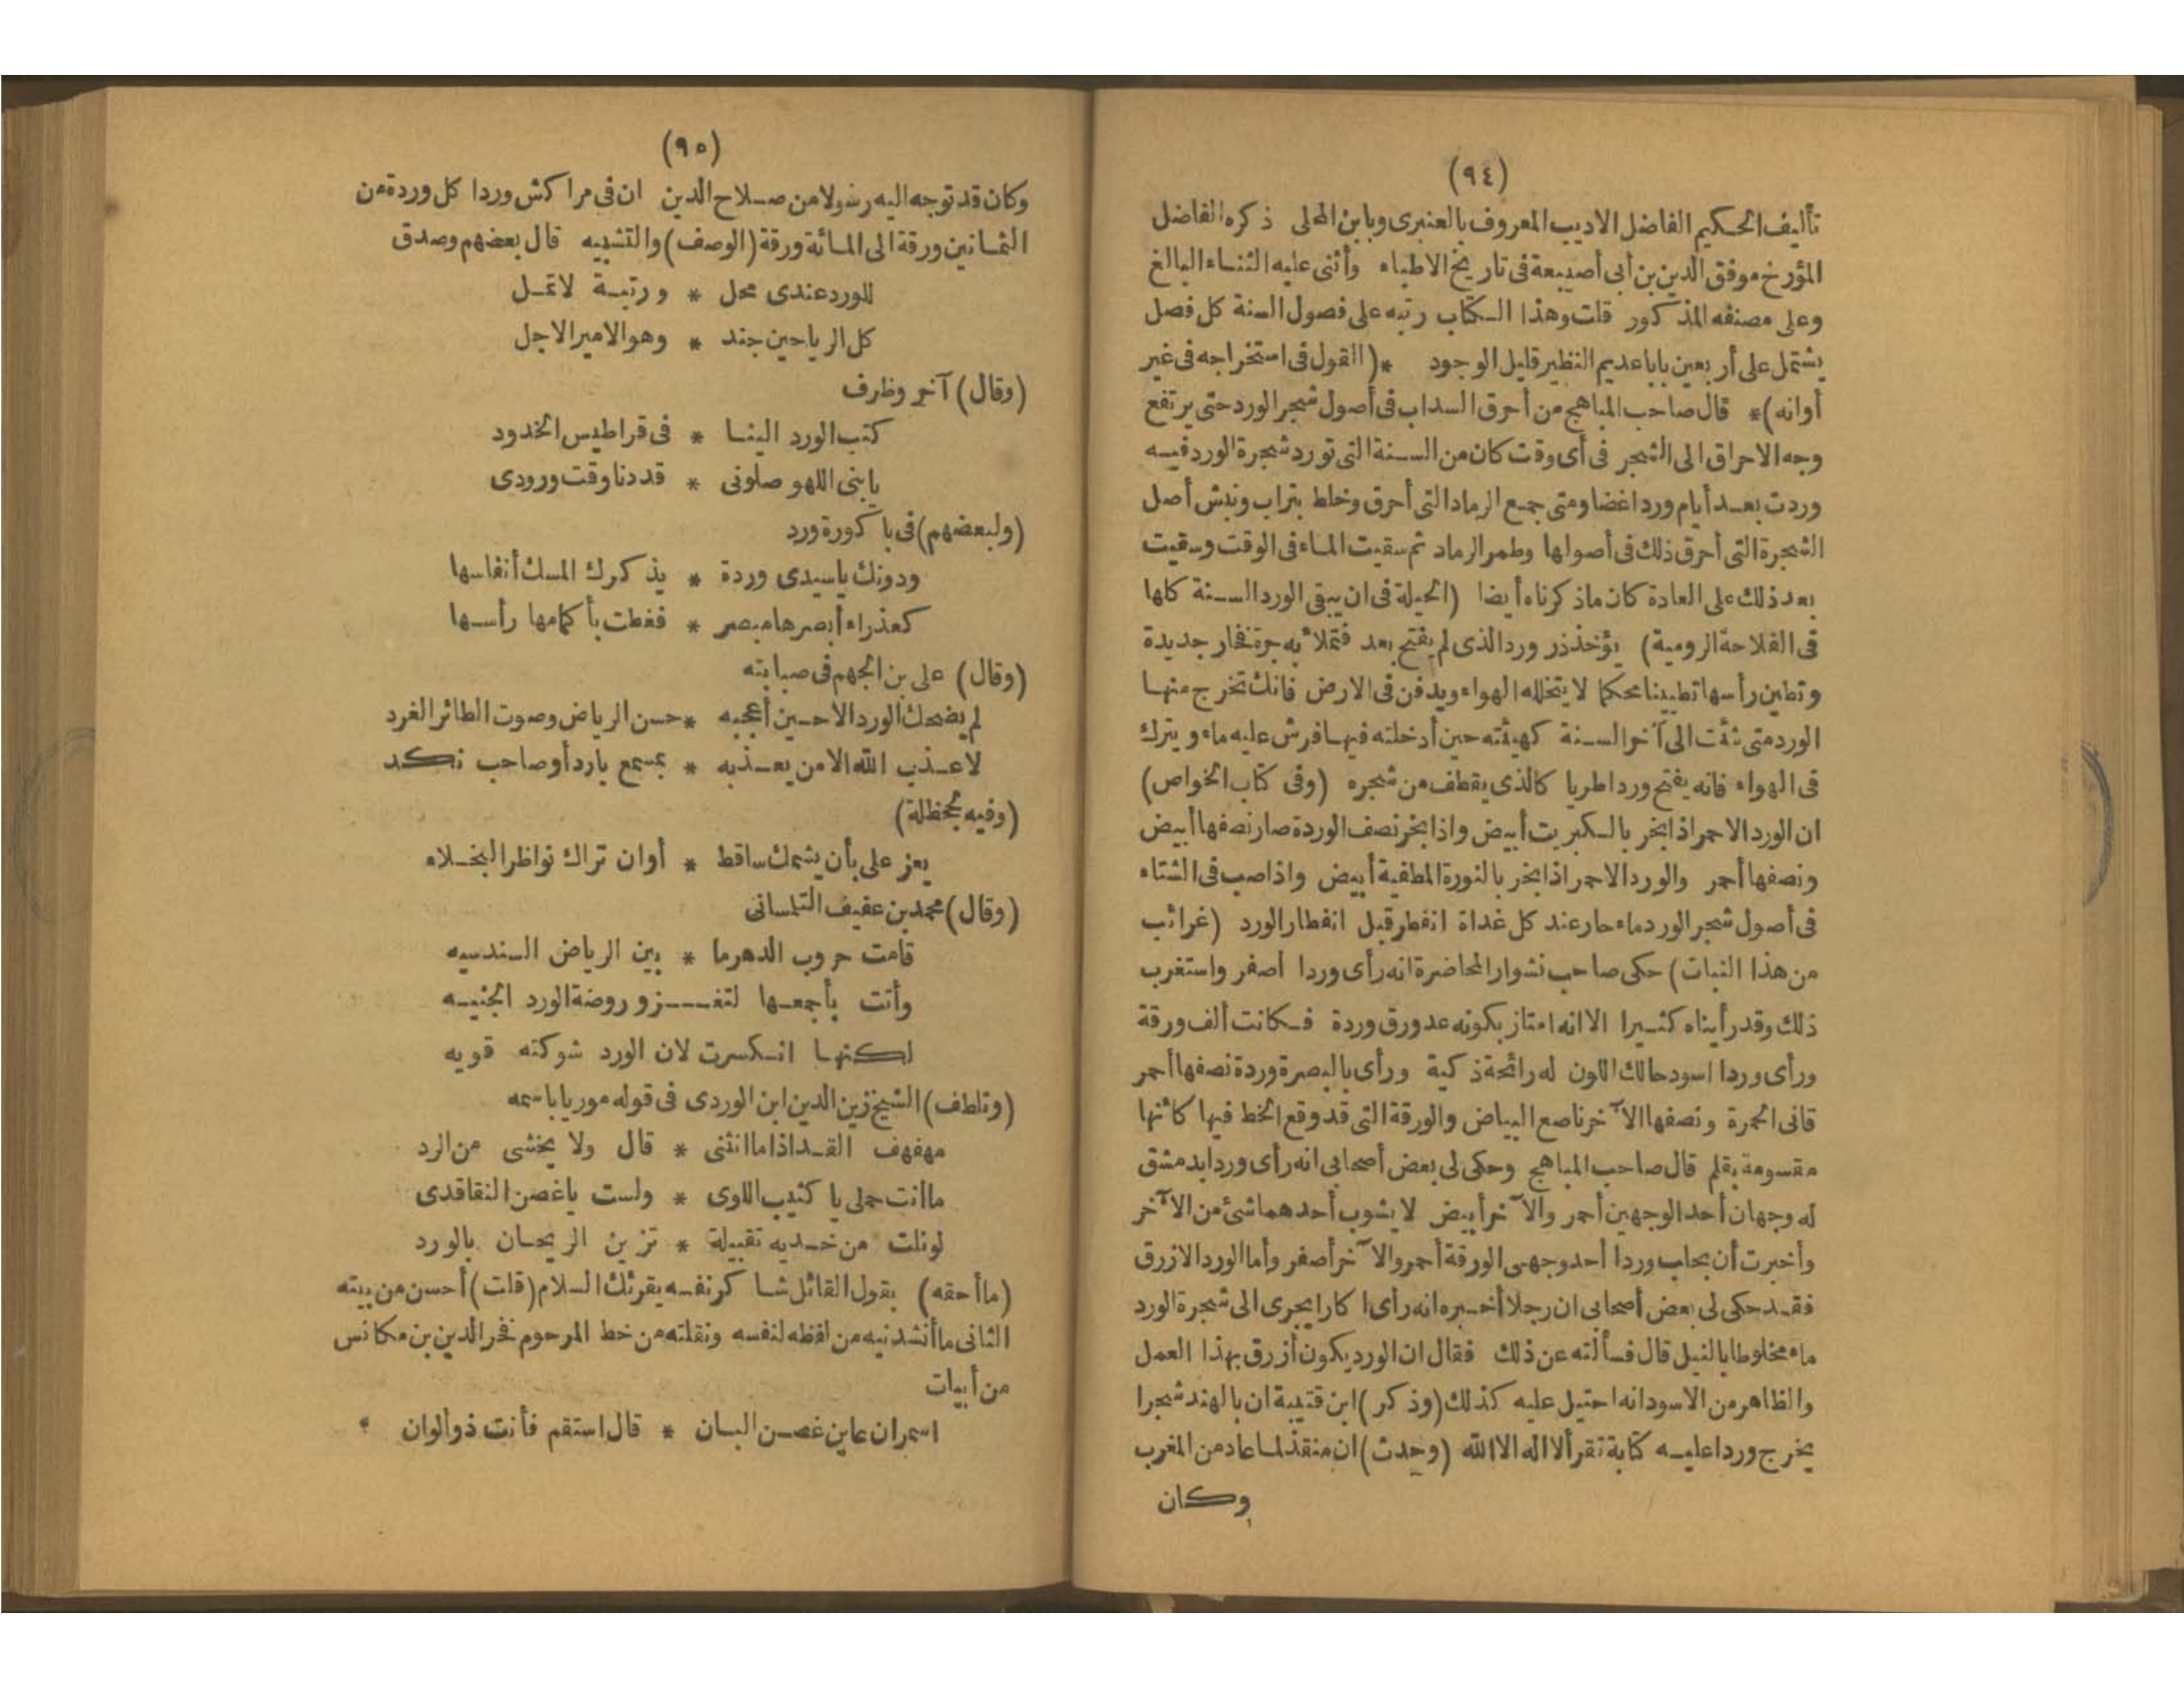 (٩٤)
تأليف الحكيم الفاضل الاديب المعروف بالعنبرى وبابن المحلى ذكره الفاضل
المؤرخ موفق الدين بن أبى أصيبعة فى تاريخ الاطباء وأثنى عليه الثناء البالغ
وعلى مصنفه المذكور قلت وهذا الكتاب رتبه على فصول السنة كل فصل
يشتمل على أربعين بابا عديم النظير قليل الوجود *(القول فى استخراجه فى غير
أوانه)* قال صاحب المباهج من أحرق السداب فى أصول شجر الورد حتى يرتفع
وجه الاحراق الى الشجر فى أى وقت كان من السنة التى تورد شجرة الورد فيه
وردت بعد أيام وردا غضا ومتى جمع الرماد التى أحرق وخلط بتراب ونبش أصل
الشجرة التى أحرق ذلك فى أصولها وطمر الرماد ثم سقيت الماء فى الوقت وسقيت
بعد ذلك على العادة كان ماذكرناه أيضا (الحيلة فى ان يبقى الورد السنة كلها
فى الفلاحة الرومية) يؤخذ زر ورد الذى لم يفتح بعد فتملأ به جرة فخار جديدة
وتطين رأسها تطيينا محكما لا يتخلله الهواء ويدفن فى الارض فانك تخرج منها
الورد متى شئت الى آخر السنة كهيئته حين أدخلته فيها فرش عليه ماء ويترك
فى الهواء فانه يفتح وردا طريا كالذى يقطف من شجره (وفى كتاب الخواص)
ان الورد الاحمر اذا بخر بالكبريت أبيض واذا بخر نصف الوردة صار نصفها أبيض
ونصفها أحمر والورد الاحمر اذا بخر بالنورة المطفية أبيض واذا صب فى الشتاء
فى أصول شجر الورد ماء حار عند كل غداة انفطر قبل انفطار الورد (غرائب
من هذا النبات) حكى صاحب نشوار المحاضرة انه رأى وردا أصفر واستغرب
ذلك وقد رأيناه كثيرا الا انه امتاز بكونه عد ورق وردة فكانت ألف ورقة
ورأى وردا اسود حالك اللون له رائحة ذكية ورأى بالبصرة وردة نصفها أحمر
قانى الحمرة ونصفها الآخر ناصع البياض والورقة التى قد وقع الخط فيها كأنها
مقسومة بقلم قال صاحب المباهج وحكى لى بعض أصحابى انه رأى وردا بدمشق
له وجهان أحد الوجهين أحمر والآخر أبيض لا يشوب أحدهما شئ من الآخر
وأخبرت أن بحلب وردا أحد وجهى الورقة أحمر والآخر أصفر وأما الورد الازرق
فقد حكى لى بعض أصحابى ان رجلا أخبره انه رأى اكارا يجرى الى شجرة الورد
ماء مخلوطا بالنيل قال فسألته عن ذلك فقال ان الورد يكون أزرق بهذا العمل
والظاهر من الاسود انه احتيل عليه كذلك (وذكر) ابن قتيبة ان بالهند شجرا
يخرج وردا عليه كتابة تقرأ لا اله الا الله (وحدث) ان منقذ لما عاد من المغرب
وكان
(٩٥)
وكان قد توجه اليه رسولا من صلاح الدين ان فى مراكش وردا كل وردة من
الثمانين ورقة الى المائة ورقة (الوصف) والتشبيه قال بعضهم وصدق
للورد عندى محل * ورتبة لا تمل
كل الرياحين جند * وهو الامير الاجل
(وقال) آخر وظرف
كتب الورد الينا * فى قراطيس الخدود
يابنى اللهو صلونى * قد دنا وقت ورودى
(ولبعضهم) فى باكورة ورد
ودونك ياسيدى وردة * يذكرك المسك أنفاسها
كعذراء أبصرها مبصر * فغطت بأكمامها رأسها
(وقال) على بن الجهم فى صبابته
لم يضحك الورد الا حين أعجبه * حسن الرياض وصوت الطائر الغرد
لا عذب الله الا من يعذبه * بمسمع بارد أو صاحب نكد
(وفيه لجحظلة)
يعز على بأن يشمك ساقط * أوان تراك نواظر البخلاء
(وقال) محمد بن عفيف التلمسانى
قامت حروب الدهر ما * بين الرياض السندسيه
وأتت بأجمعها لتغـزو روضة الورد الجنيه
لكنها انكسرت لان الورد شوكته قويه
(وتلطف) الشيخ زين الدين ابن الوردى فى قوله موريا باسمه
مهفهف القد اذا ما انثنى * قال ولا يخشى من الرد
ما أنت حملى يا كثيب اللوى * ولست ياغصن النقا قدى
لونلت من خديه تقبيلة * تزين الريحان بالورد
(ما أحقه) بقول القائل شاكر نفسه يقرئك السلام (قلت) أحسن من بيته
الثانى ما أنشدنيه من لفظه لنفسه ونقلته من خط المرحوم فخر الدين بن مكانس
من أبيات
اسمران عاين غصن البان * قال استقم فأنت ذو ألوان